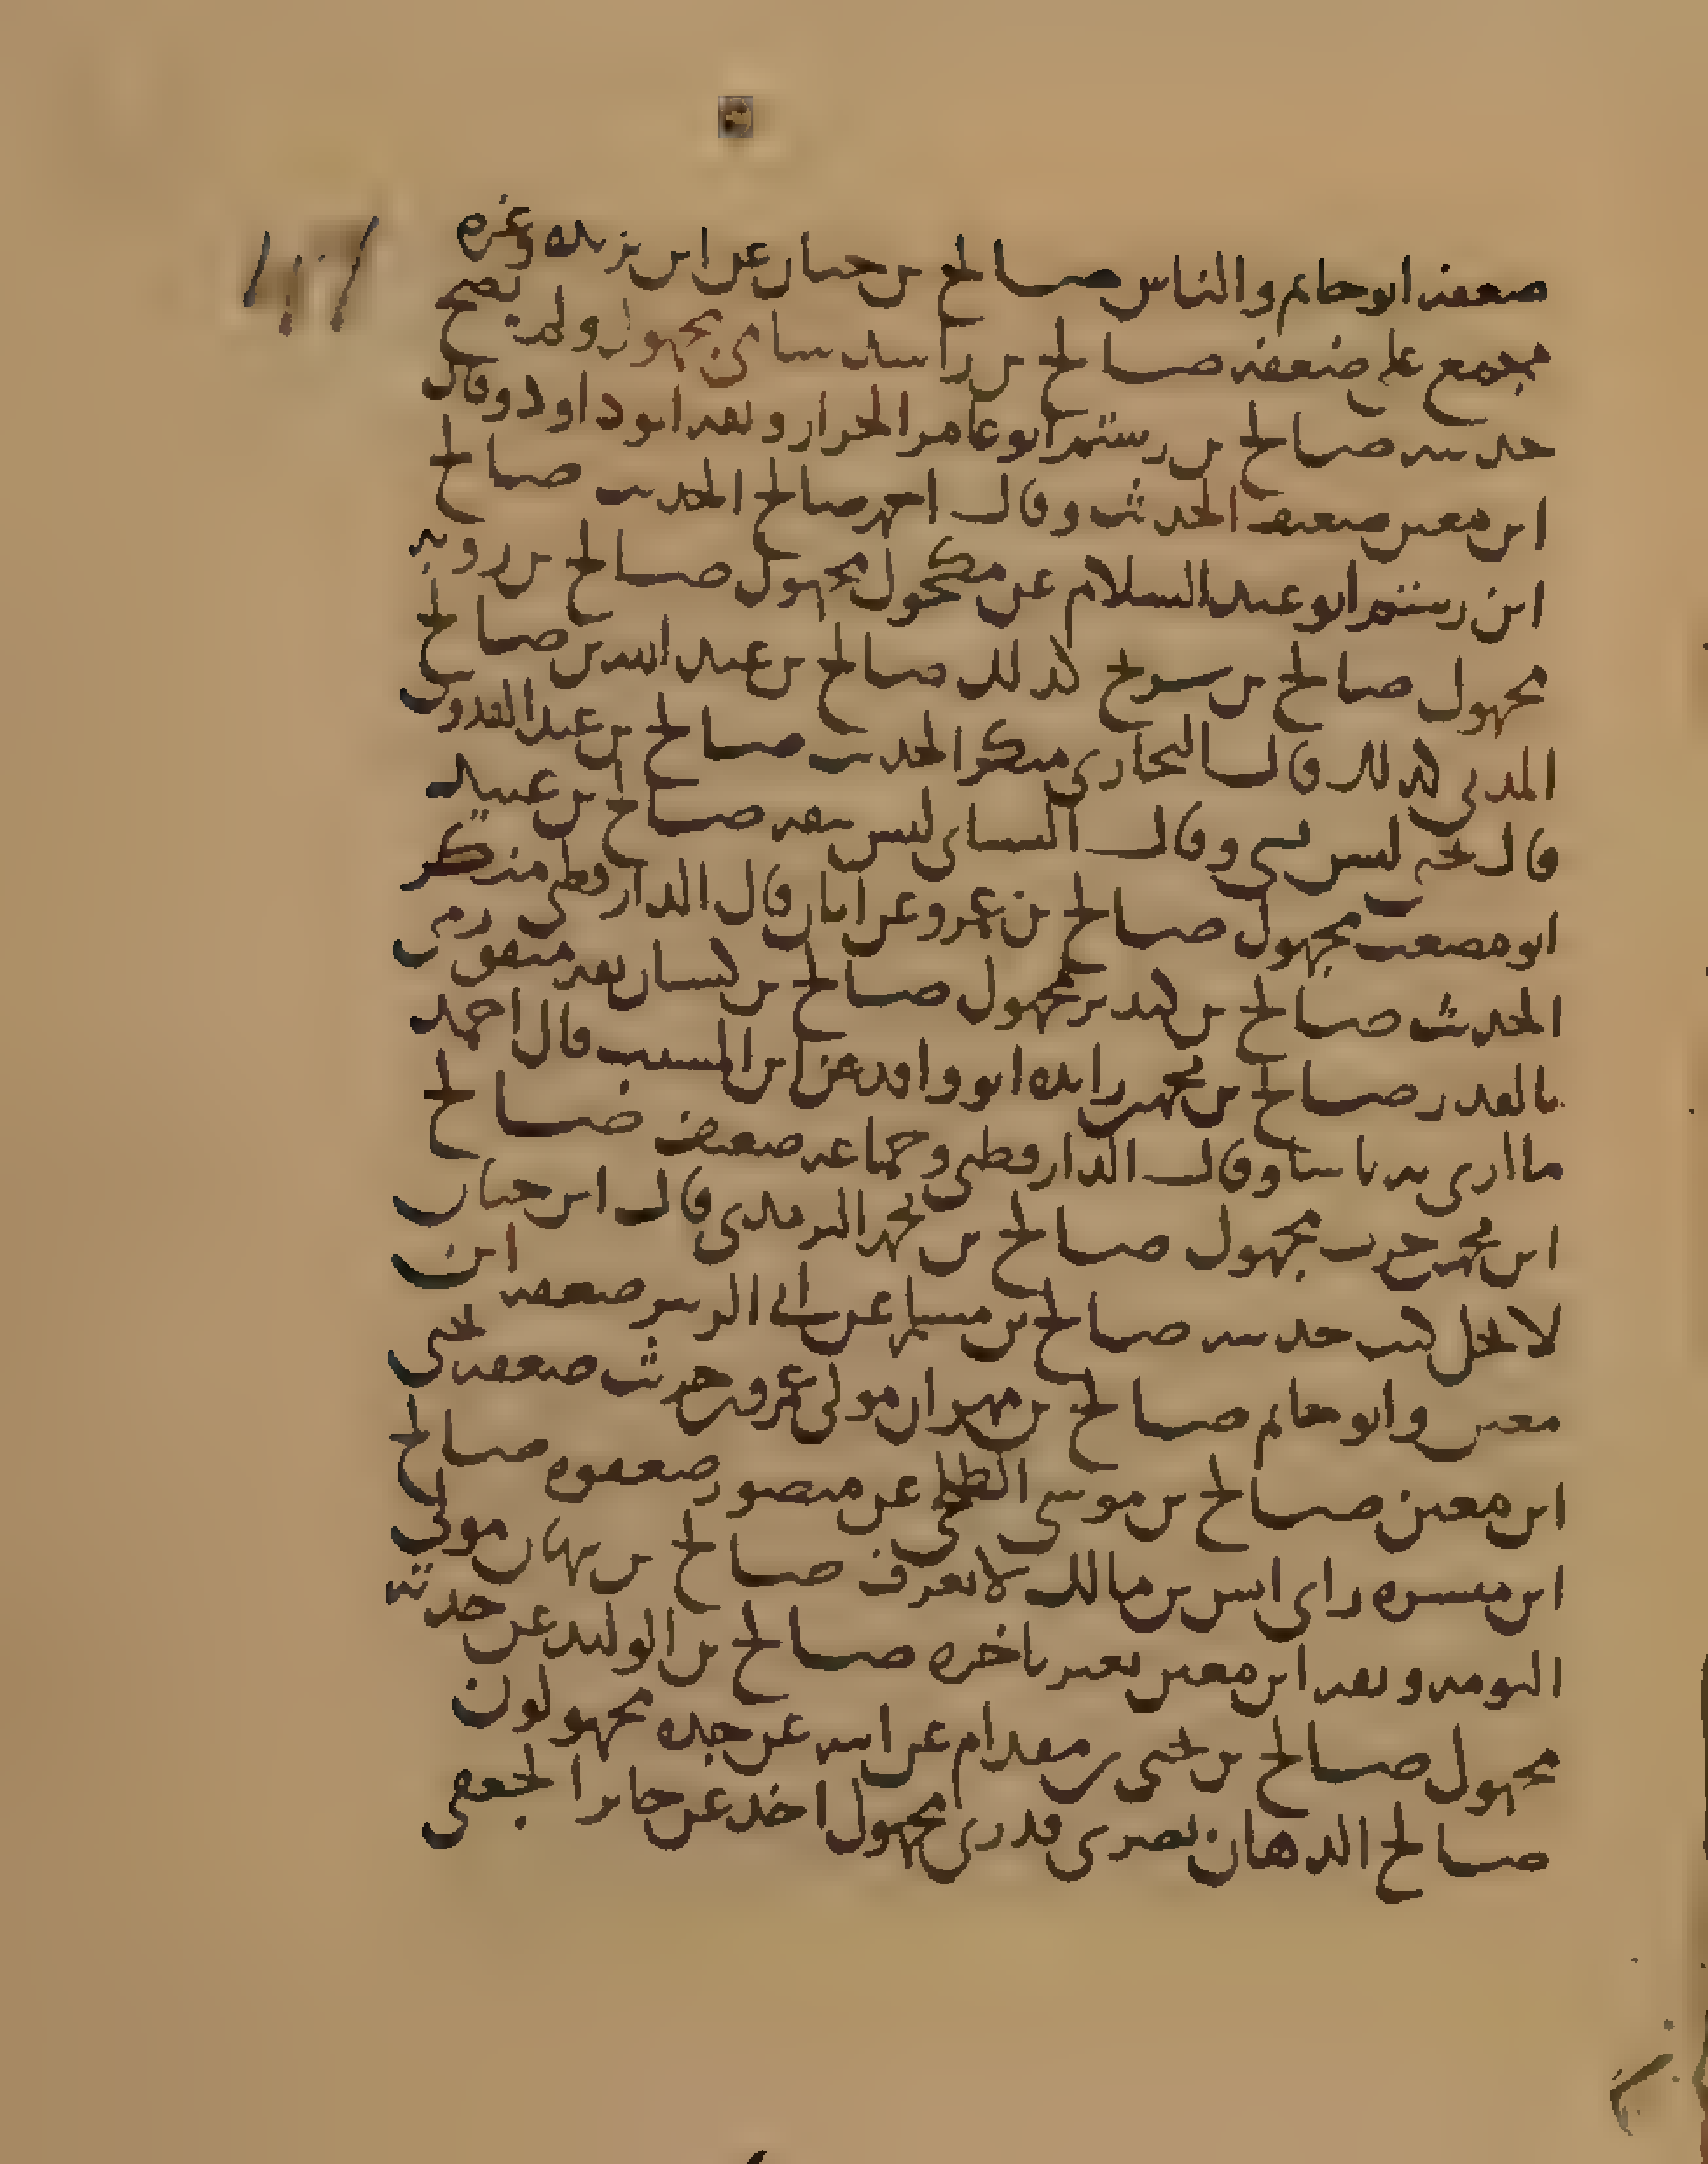 ضعفه ابو حاتم والناس صالح بن حيان عن ابن بريده وغيره
مجمع على ضعفه صالح بن راشد شامي مجهول ولم يصح
حديثه صالح بن رستم ابو عامر الخزاز وثقه ابو داود وقال
ابن معين ضعيف الحديث وقال احمد صالح الحديث صالح
ابن رستم ابو عبد السلام عن مكحول مجهول صالح بن روبه
مجهول صالح بن سرج كذلك صالح بن عبد الله بن صالح
المدني كذلك قال البخاري منكر الحديث صالح بن عبد القدوس
قال يحيى ليس بشي وقال النساي ليس بثقه صالح بن عبيد الله
ابو مصعب مجهول صالح بن عمرو عن ابان قال الدارقطني منكر
الحديث صالح بن كندير مجهول صالح بن كيسان ثقه متفق رمي
بالقدر صالح بن محمد بن زايده ابو واقد عن ابن المسيب قال احمد
ما ارى به باسا وقال الدارقطني وجماعه ضعيف صالح
ابن محمد حرب مجهول صالح بن محمد الترمذي قال ابن حبان
لا يحل كتب حديثه صالح بن مسلم عن ابي الزبير ضعفه ابن
معين وابو حاتم صالح بن مهران مولى عمرو بن حريث ضعفه يحيى
ابن معين صالح بن موسى الطلحي عن منصور ضعفوه صالح
ابن ميسره راى انس بن مالك لا يعرف صالح بن نبهان مولى
التومه وثقه ابن معين تغير باخره صالح بن الوليد عن جدته
مجهول صالح بن يحيى بن مقدام عن ابيه عن جده مجهولون
صالح الدهان بصري قدري مجهول اخذ عن جابر الجعفي